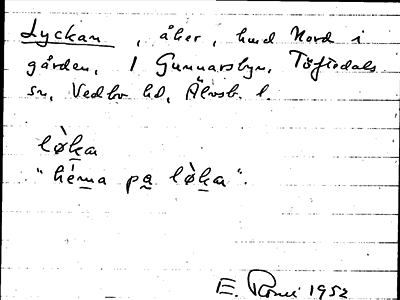 Lyckan, åker, hmd Nord i
gården, 1 Gunnarsbyn, Töftedals
sn, Vedbo hd, Älvsb. l.
lø̀kar
"hèma pa lø̀kar".
E. 1952